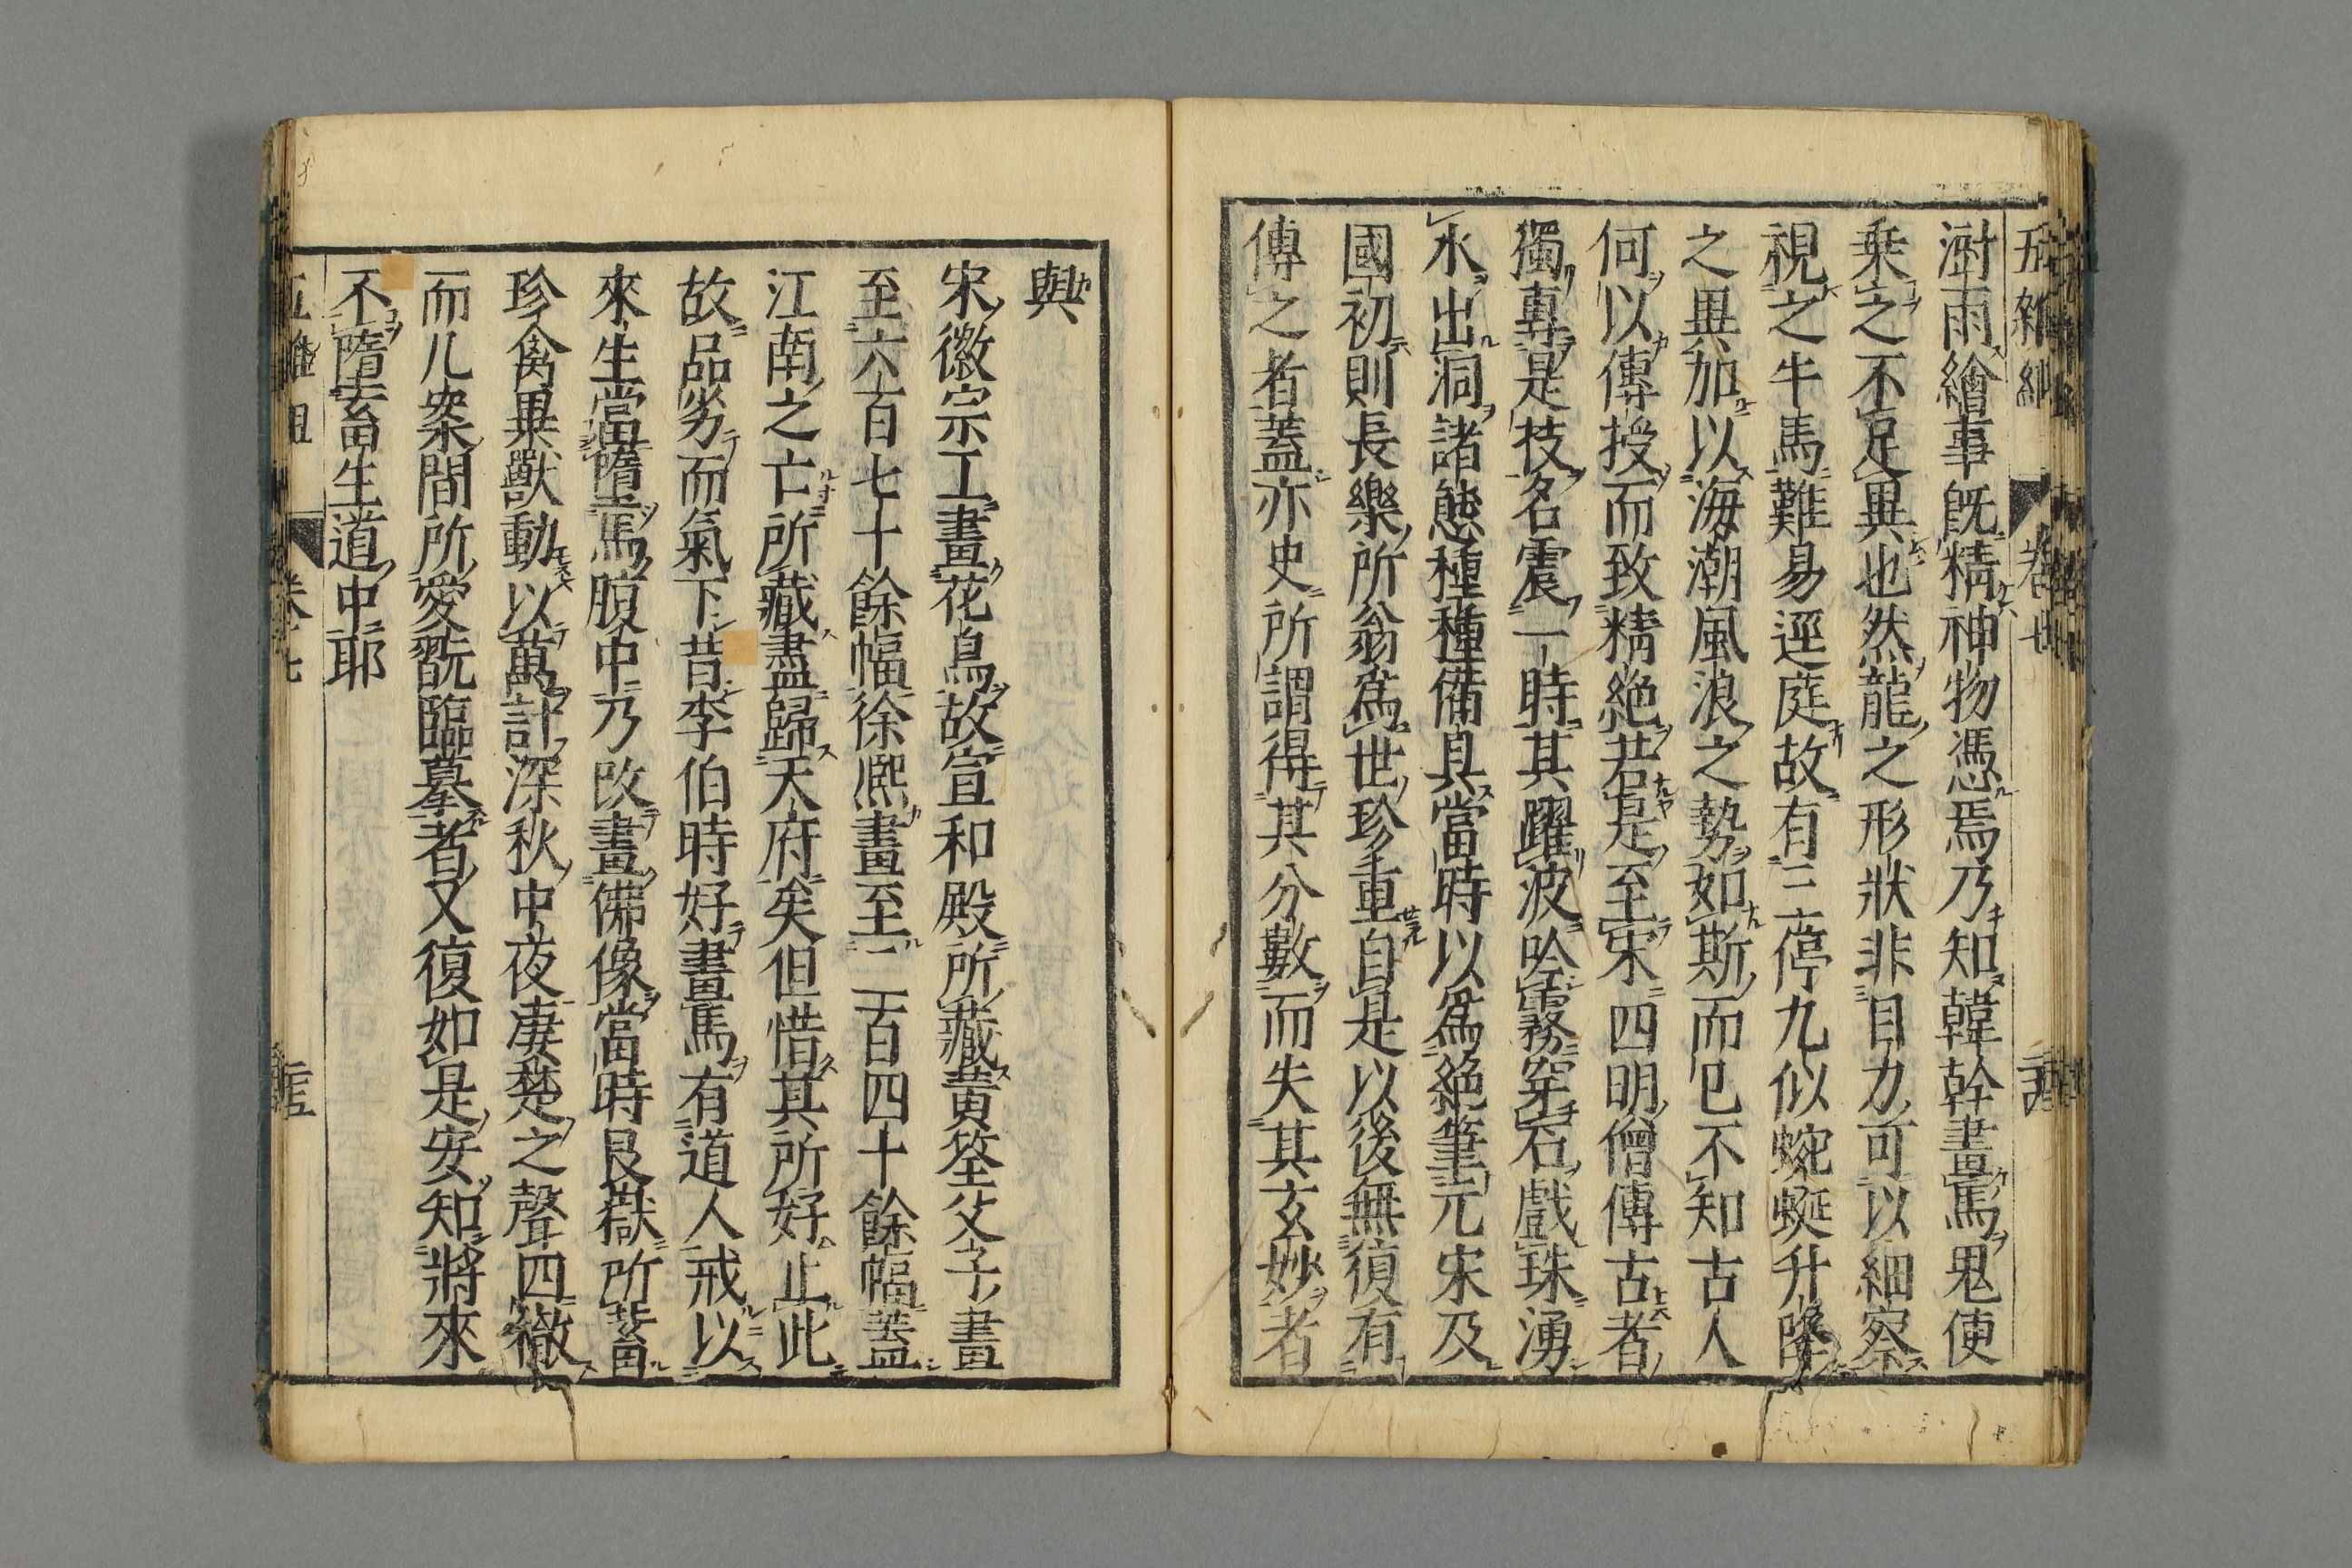 五雜組 卷七
澍雨繪事旣精神物憑焉乃知韓幹畫馬鬼使
乗之不足異也然龍之形狀非目力可以細察
視之牛馬難易逕庭故有三停九似蜿蜒升降
之異加以海潮風浪之勢如斯而已不知古人
何以傳授而致精絶若是至宋四明僧傳古者
獨專是技名震一時其躍波吟霧穿石戲珠湧
水出洞諸態種種備具當時以爲絶筆元宋及
國初則長樂所翁爲世珍重自是以後無復有
傳之者蓋亦史所謂得其分數而失其玄妙者
與
宋徽宗工畫花鳥故宣和殿所藏黄筌父子畫
至六百七十餘幅徐熙畫至二百四十餘幅蓋
江南之亡所藏盡歸天府矣但惜其所好止此
故品劣而氣下昔李伯時好畫馬有道人戒以
來生當墮馬腹中乃改畫佛像當時艮嶽所畜
珍禽異獸動以萬計深秋中夜淒楚之聲四徹
而几案間所愛翫臨摹者又復如是安知將來
不墮畜生道中耶
五雜組 卷七